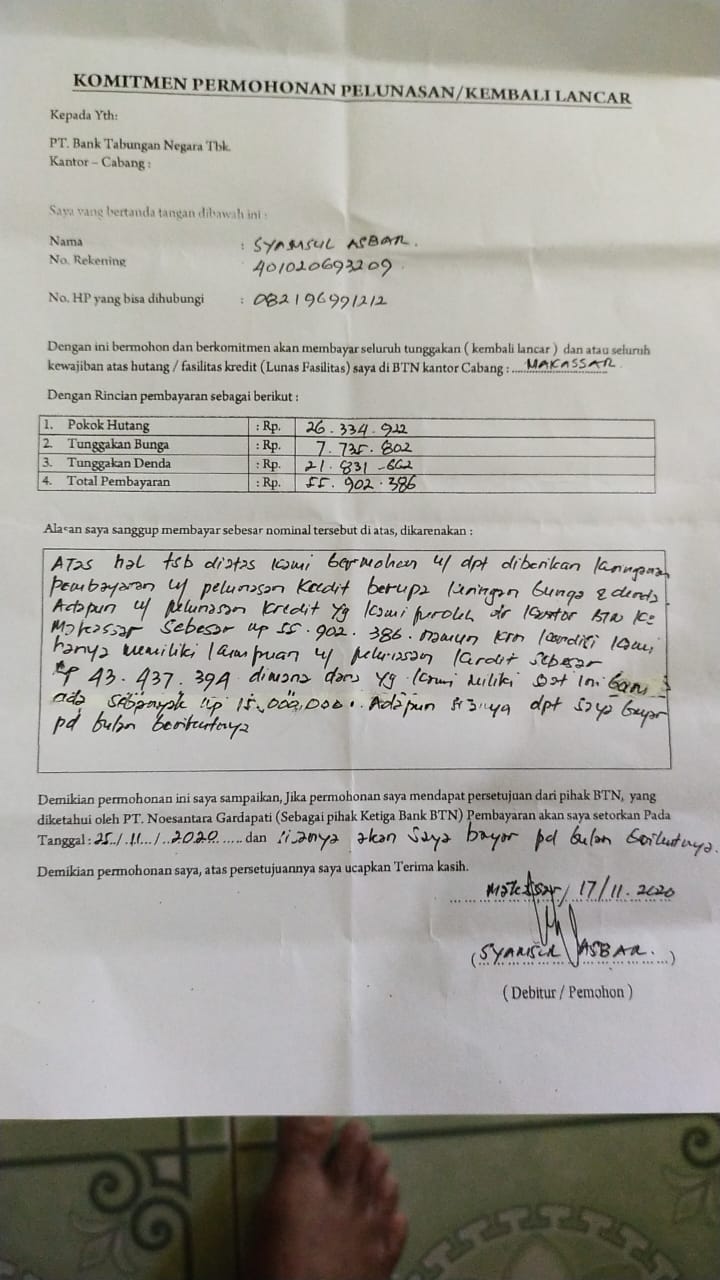 KOMITMEN PERMOHONAN PELUNASAN/KEMBALI LANCAR
Kepada Yth:
PT. Bank Tabungan Negara Tbk.
Kantor – Cabang :
Saya yang bertanda tangan dibawah ini :
Nama : SYAMSUL ASBAR.
No. Rekening 401020693209.
No. HP yang bisa dihubungi : 082196991212
Dengan ini bermohon dan berkomitmen akan membayar seluruh tunggakan ( kembali lancar ) dan atau seluruh
kewajiban atas hutang / fasilitas kredit (Lunas Fasilitas) saya di BTN kantor Cabang : MAKASSAR
Dengan Rincian pembayaran sebagai berikut :
1. Pokok Hutang : Rp. 26.334.922
2. Tunggakan Bunga : Rp. 7.735.802
3. Tunggakan Denda : Rp. 21.831.662
4. Total Pembayaran : Rp. 55.902.386
Alasan saya sanggup membayar sebesar nominal tersebut di atas, dikarenakan :
Atas hal tsb diatas kami bermohon u/ dpt diberikan
pembayaran u/ pelunasan kredit berupa bunga & denda.
Adapun u/ pelunasan kredit yg kami peroleh dr kantor BTN
Makassar sebesar Rp 55.902.386. namun krn kondisi kami
hanya memiliki u/ pelunasan kredit sebesar
Rp 43.437.394 dimana dana yg kami miliki saat ini baru
ada sebanyak Rp 15.000.000. Adapun sisanya dpt saya bayar
pd bulan berikutnya
Demikian permohonan ini saya sampaikan, Jika permohonan saya mendapat persetujuan dari pihak BTN, yang
diketahui oleh PT. Noesantara Gardapati (Sebagai pihak Ketiga Bank BTN) Pembayaran akan saya setorkan Pada
Tanggal : 25/11/2020 dan sisanya akan saya bayar pd bulan berikutnya.
Demikian permohonan saya, atas persetujuannya saya ucapkan Terima kasih.
Makassar, 17/11.2020
(SYAMSUL ASBAR.)
( Debitur / Pemohon )